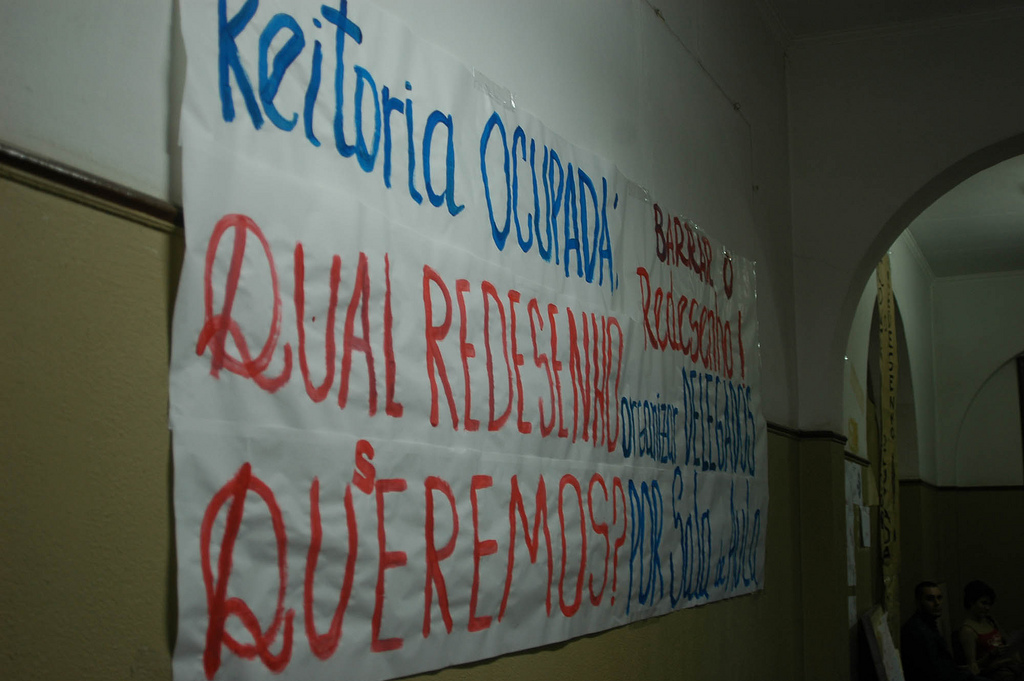 Reitoria OCUPADA:
QUAL REDESENHO
QUsEREMOS?
BARRAR O
Redesenho!
organizar DELEGADOS
POR Sala de Aula